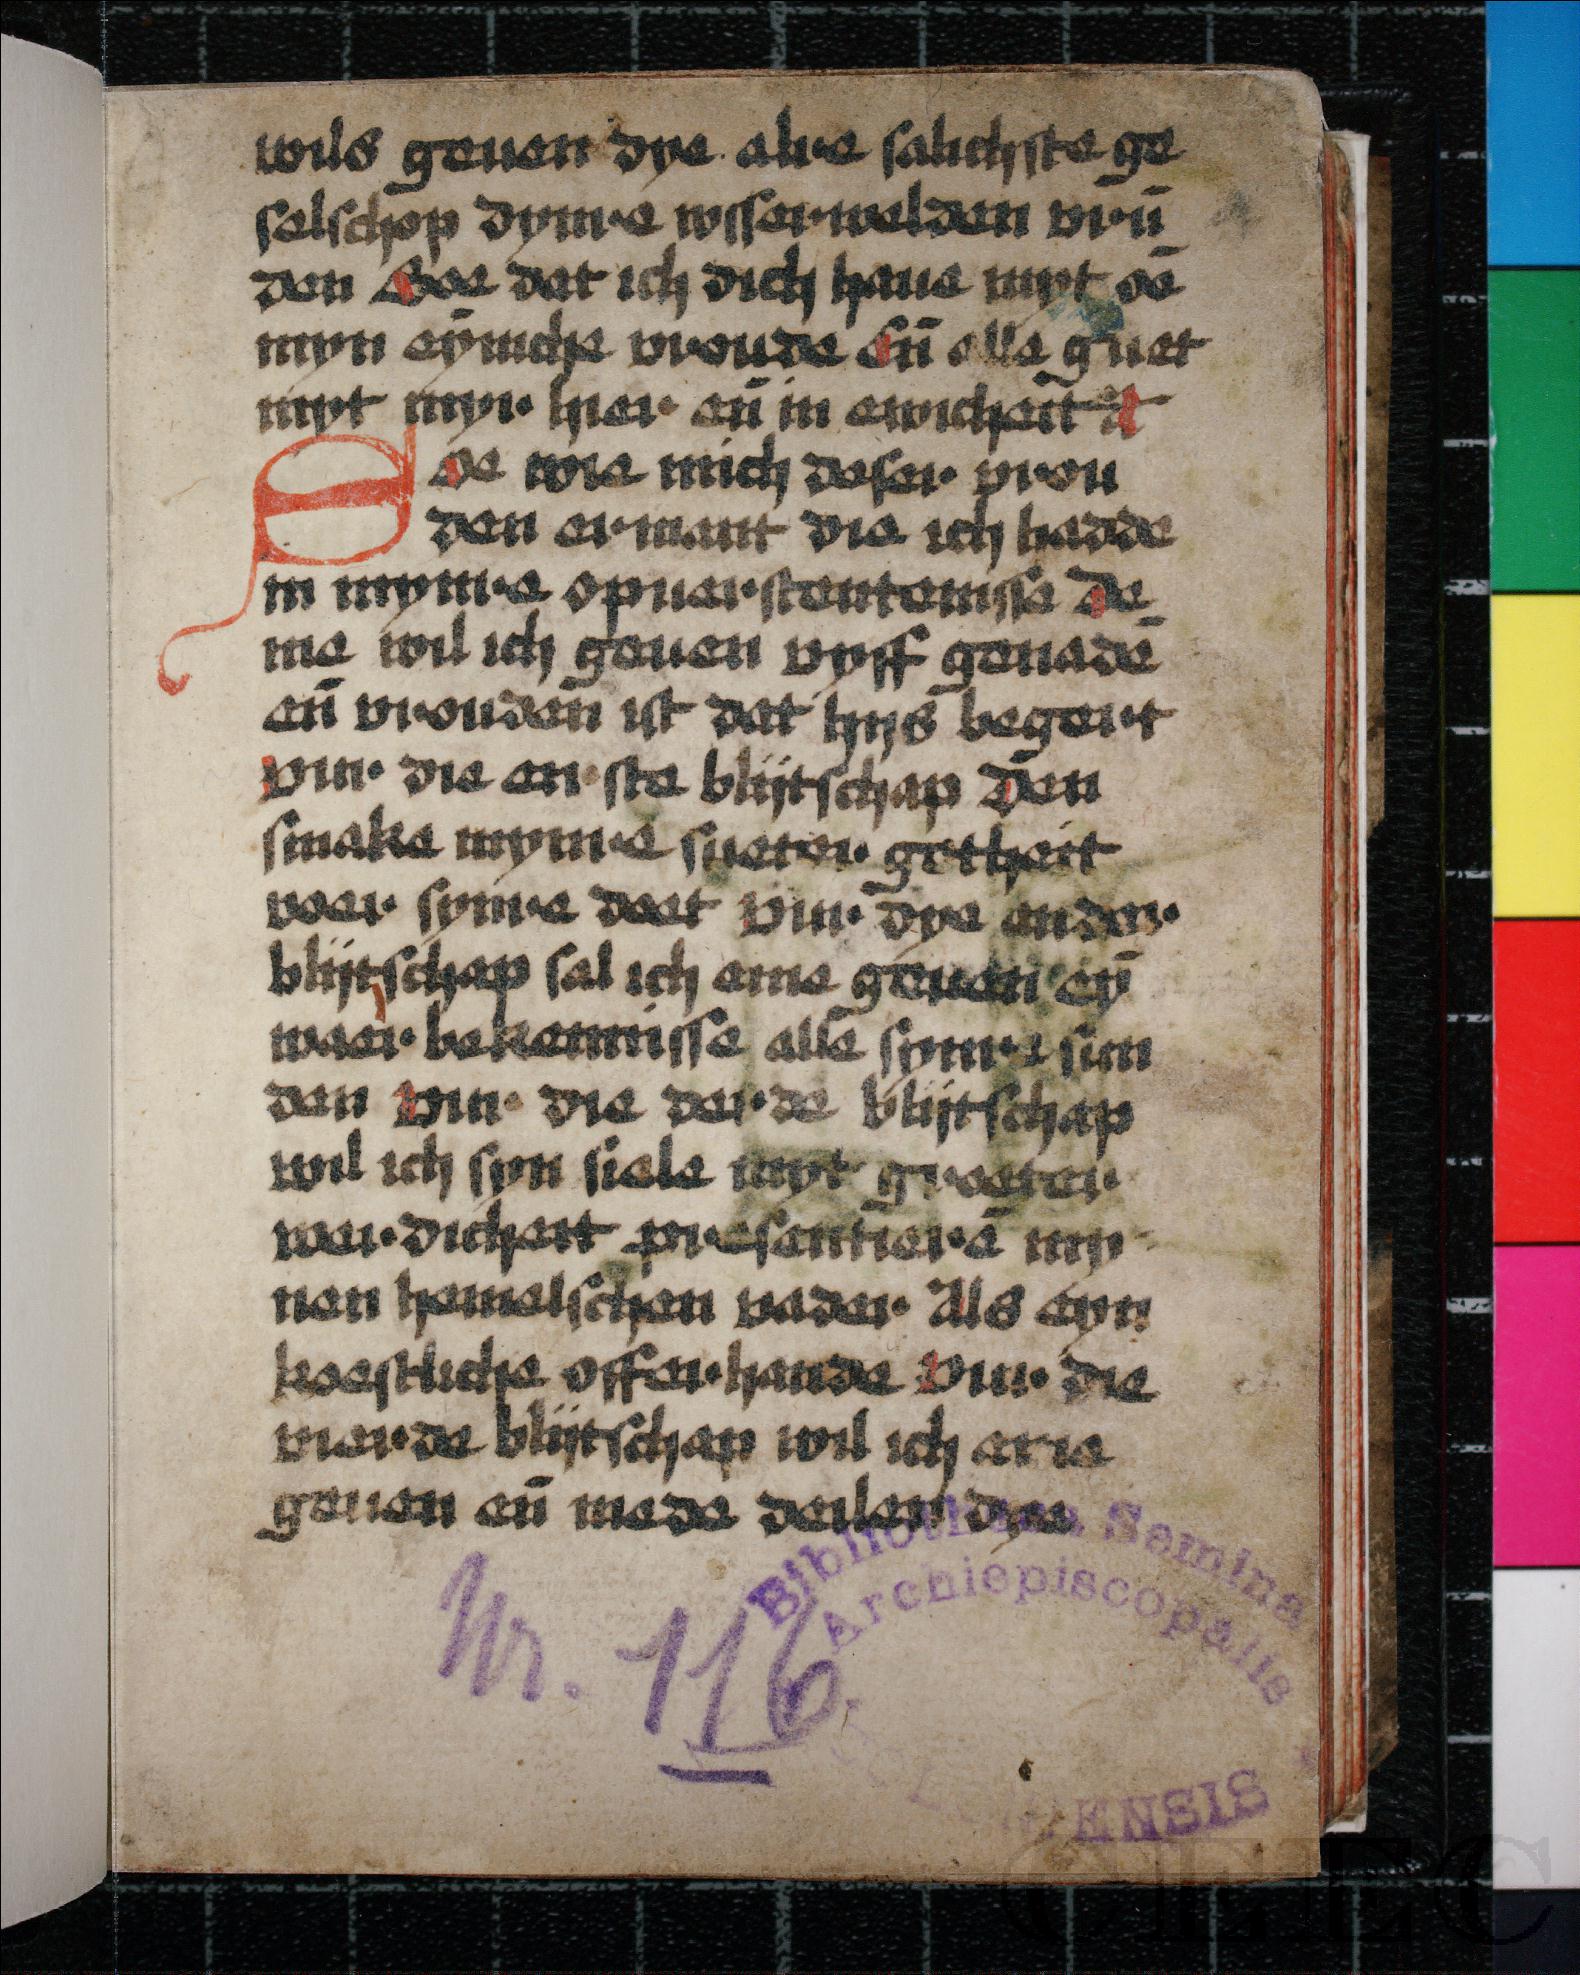 wils geuen dye alre salichste ge
selschop dynre wsserwelden vrū
den Soe dat ich dich haue myt oē
myn eȳniche vroude Eñ alle guet
myt myr hier eñ in ewicheit A
Soe wie mich deser vrou
den ermant die ich hadde
in mynre opuerstentenisse De
me wil ich geuen vyff genadē
eñ vrouden ist dat hijs begert
Vur die erste blijtschap Den
smake mynre sueter getheit
voer synre doet Vur dye ander
blijtschap sal ich eme geuen eȳ
waer bekennisse alle synre sun
den Vur die derde blijtschap
wil ich syn siele myt groeter
werdicheit presentierē my
nen hemelschen vader Als eyn
koestliche offerhande Vur die
vierde blijtschap wil ich eme
geuen eñ mede deilen dye
Nr. 116.
Bibliotheca Semina
Archiepiscopalis
ENSIS
CEEC